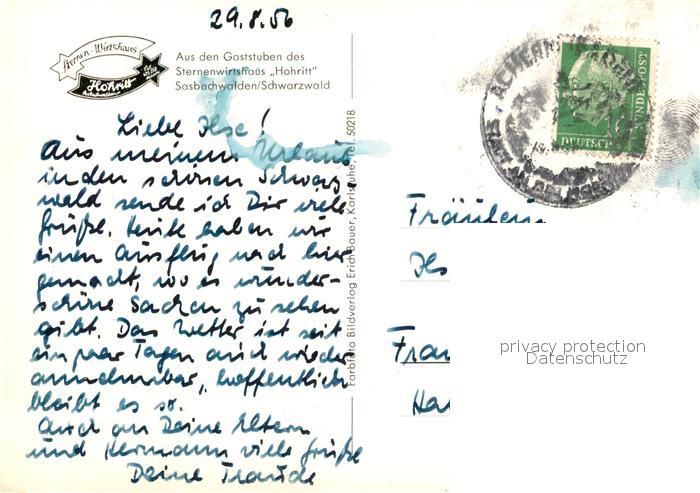 29.8.56
Sternen-Wirtshaus
Hohritt
Aus den Gaststuben des
Sternenwirtshaus „Hohritt"
Sasbachwalden/Schwarzwald
Liebe Ilse!
Aus meinem Urlaub
in den schönen Schwarz
wald sende ich Dir viele
Grüße. Heute haben wir
einen Ausflug nach hier
gemacht, wo es wunder-
schöne Sachen zu sehen
gibt. Das Wetter ist seit
ein paar Tagen auch wieder
annehmbar, hoffentlich
bleibt es so.
Auch an Deine Eltern
und Hermann viele Grüße
Deine Traude
Farbfoto Bildverlag Erich Bauer, Karlsruhe, Tel. 50218
ACHERN
10
DEUTSCHE
BUNDESPOST
Fräulein
Ils
Fran
Ha
privacy protection
Datenschutz